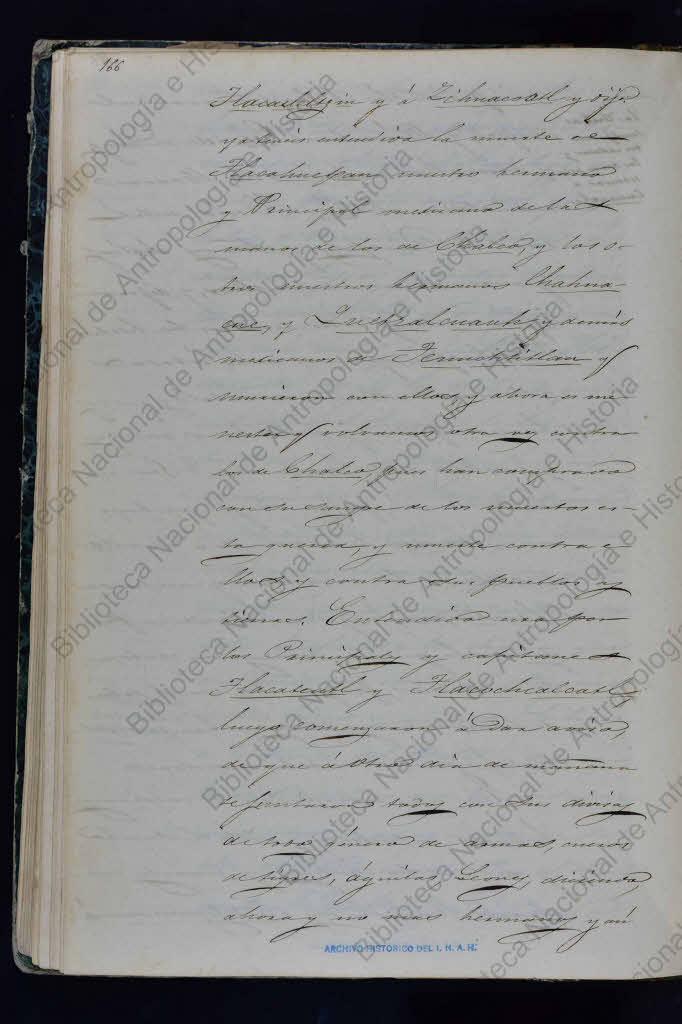 166
Tlacaeleltzin y á Zihuacoatl y dijo
ya teneis entendida la muerte de
Tlacahuepan nuestro hermano
y Principal mexicano de la
manos de los de Chalco, y los o-
tros nuestros hermanos Chahua-
cue, y Quetzalcuauh y demás
mexicanos de Tenuchtitlan q
murieron con ellos, y ahora es me
nester q volvamos otra vez contra
los de Chalco, pues han comprado
con su sangre de los muertos es-
ta guerra, y muerte contra e-
llos, y contra sus pueblos y
tierras. Entendido esto por
los Principales y capitanes
Tlacateccatl y Tlacochcalcatl,
luego comenzaron á dar aviso,
de que á otro dia de mañana
se juntaran todos con sus divisas
de todo género de armas, cueros
de tigres, águilas Leones, diciendo,
ahora y no mas hermanos y aú
ARCHIVO HISTORICO DEL I. N. A. H.
Biblioteca Nacional de Antropología e Historia